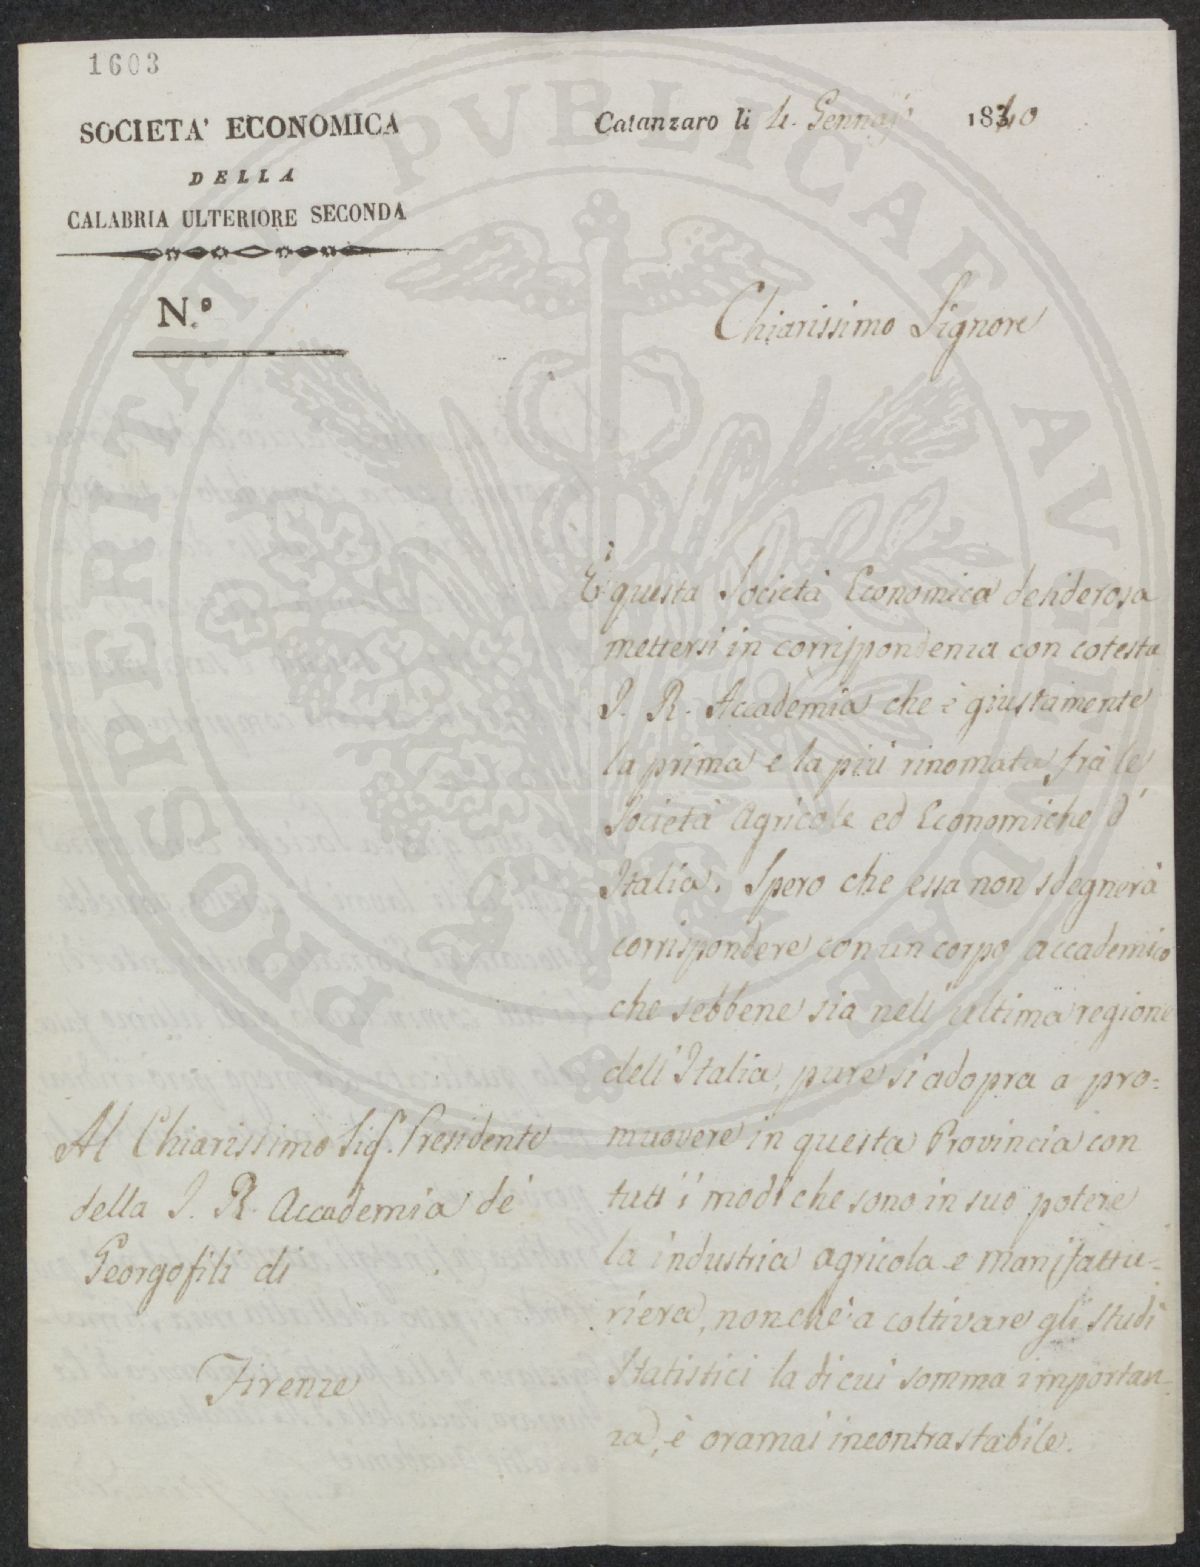 1603
SOCIETA' ECONOMICA
DELLA
CALABRIA ULTERIORE SECONDA
N.º
Catanzaro li 4. Gennajo 1840
Chiarissimo Signore
È questa Società Economica desiderosa
mettersi in corrispondenza con cotesta
I. R. Accademia che è giustamente
la prima e la più rinomata frà le
Società Agricole ed Economiche d'
Italia. Spero che essa non sdegnerà
corrispondere con un corpo accademico
che sebbene sia nell'ultima regione
dell'Italia, pure si adopra a pro=
muovere in questa Provincia con
tutt'i modi che sono in suo potere
la industria agricola e manifattu=
riera, non che a coltivare gli studi
Statistici la di cui somma importan=
za, è oramai incontrastabile.
Al Chiarissimo Sig.r Presidente
della I. R. Accademia de'
Georgofili di
Firenze
PROSPERITATI PVBLICAE AVGENDAE